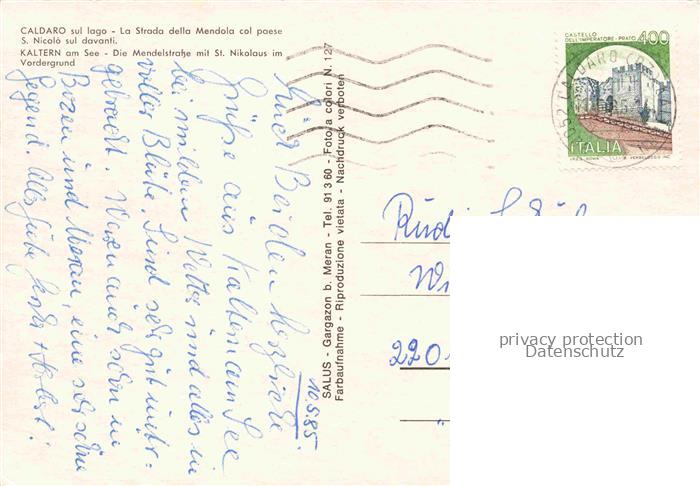 CALDARO sul lago - La Strada della Mendola col paese
S. Nicolò sul davanti.
KALTERN am See - Die Mendelstraße mit St. Nikolaus im
Vordergrund
SALUS - Gargazon b. Meran - Tel. 91 3 60 - Foto a colori N. 127
Farbaufnahme - Riproduzione vietata - Nachdruck verboten
10.5.85.
Euch Beiden herzliche
Grüße aus Kaltern am See
bei mildem Wetter und alles in
voller Blüte. Sind sehr gut unter-
gebracht. Waren auch schon in
Bozen und Meran, eine sehr schöne
Gegend. Alles Liebe
CASTELLO
DELL'IMPERATORE - PRATO 400
ITALIA
CALDARO
39052
Rudi
220
privacy protection
Datenschutz